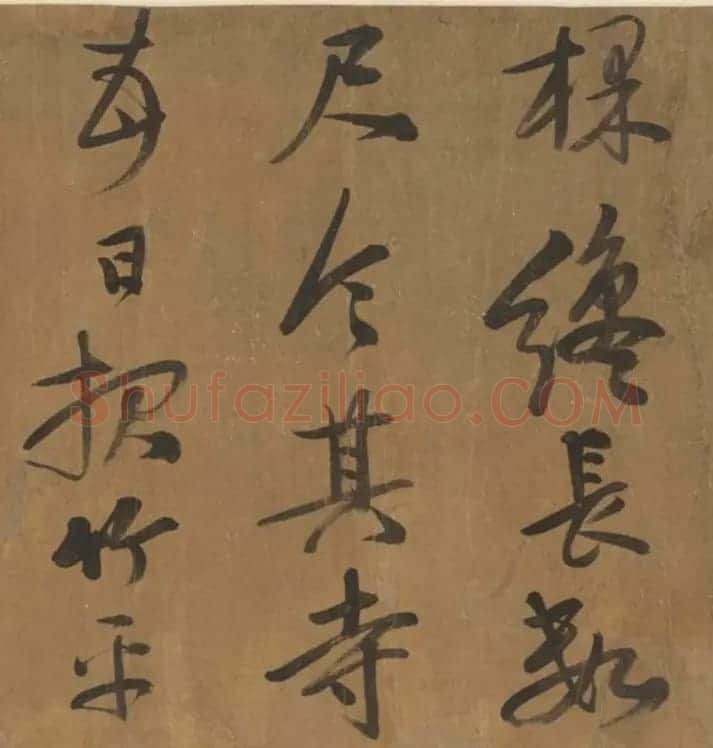 棵纔長數
尺令其寺
每日报竹平
Shufaziliao.COM